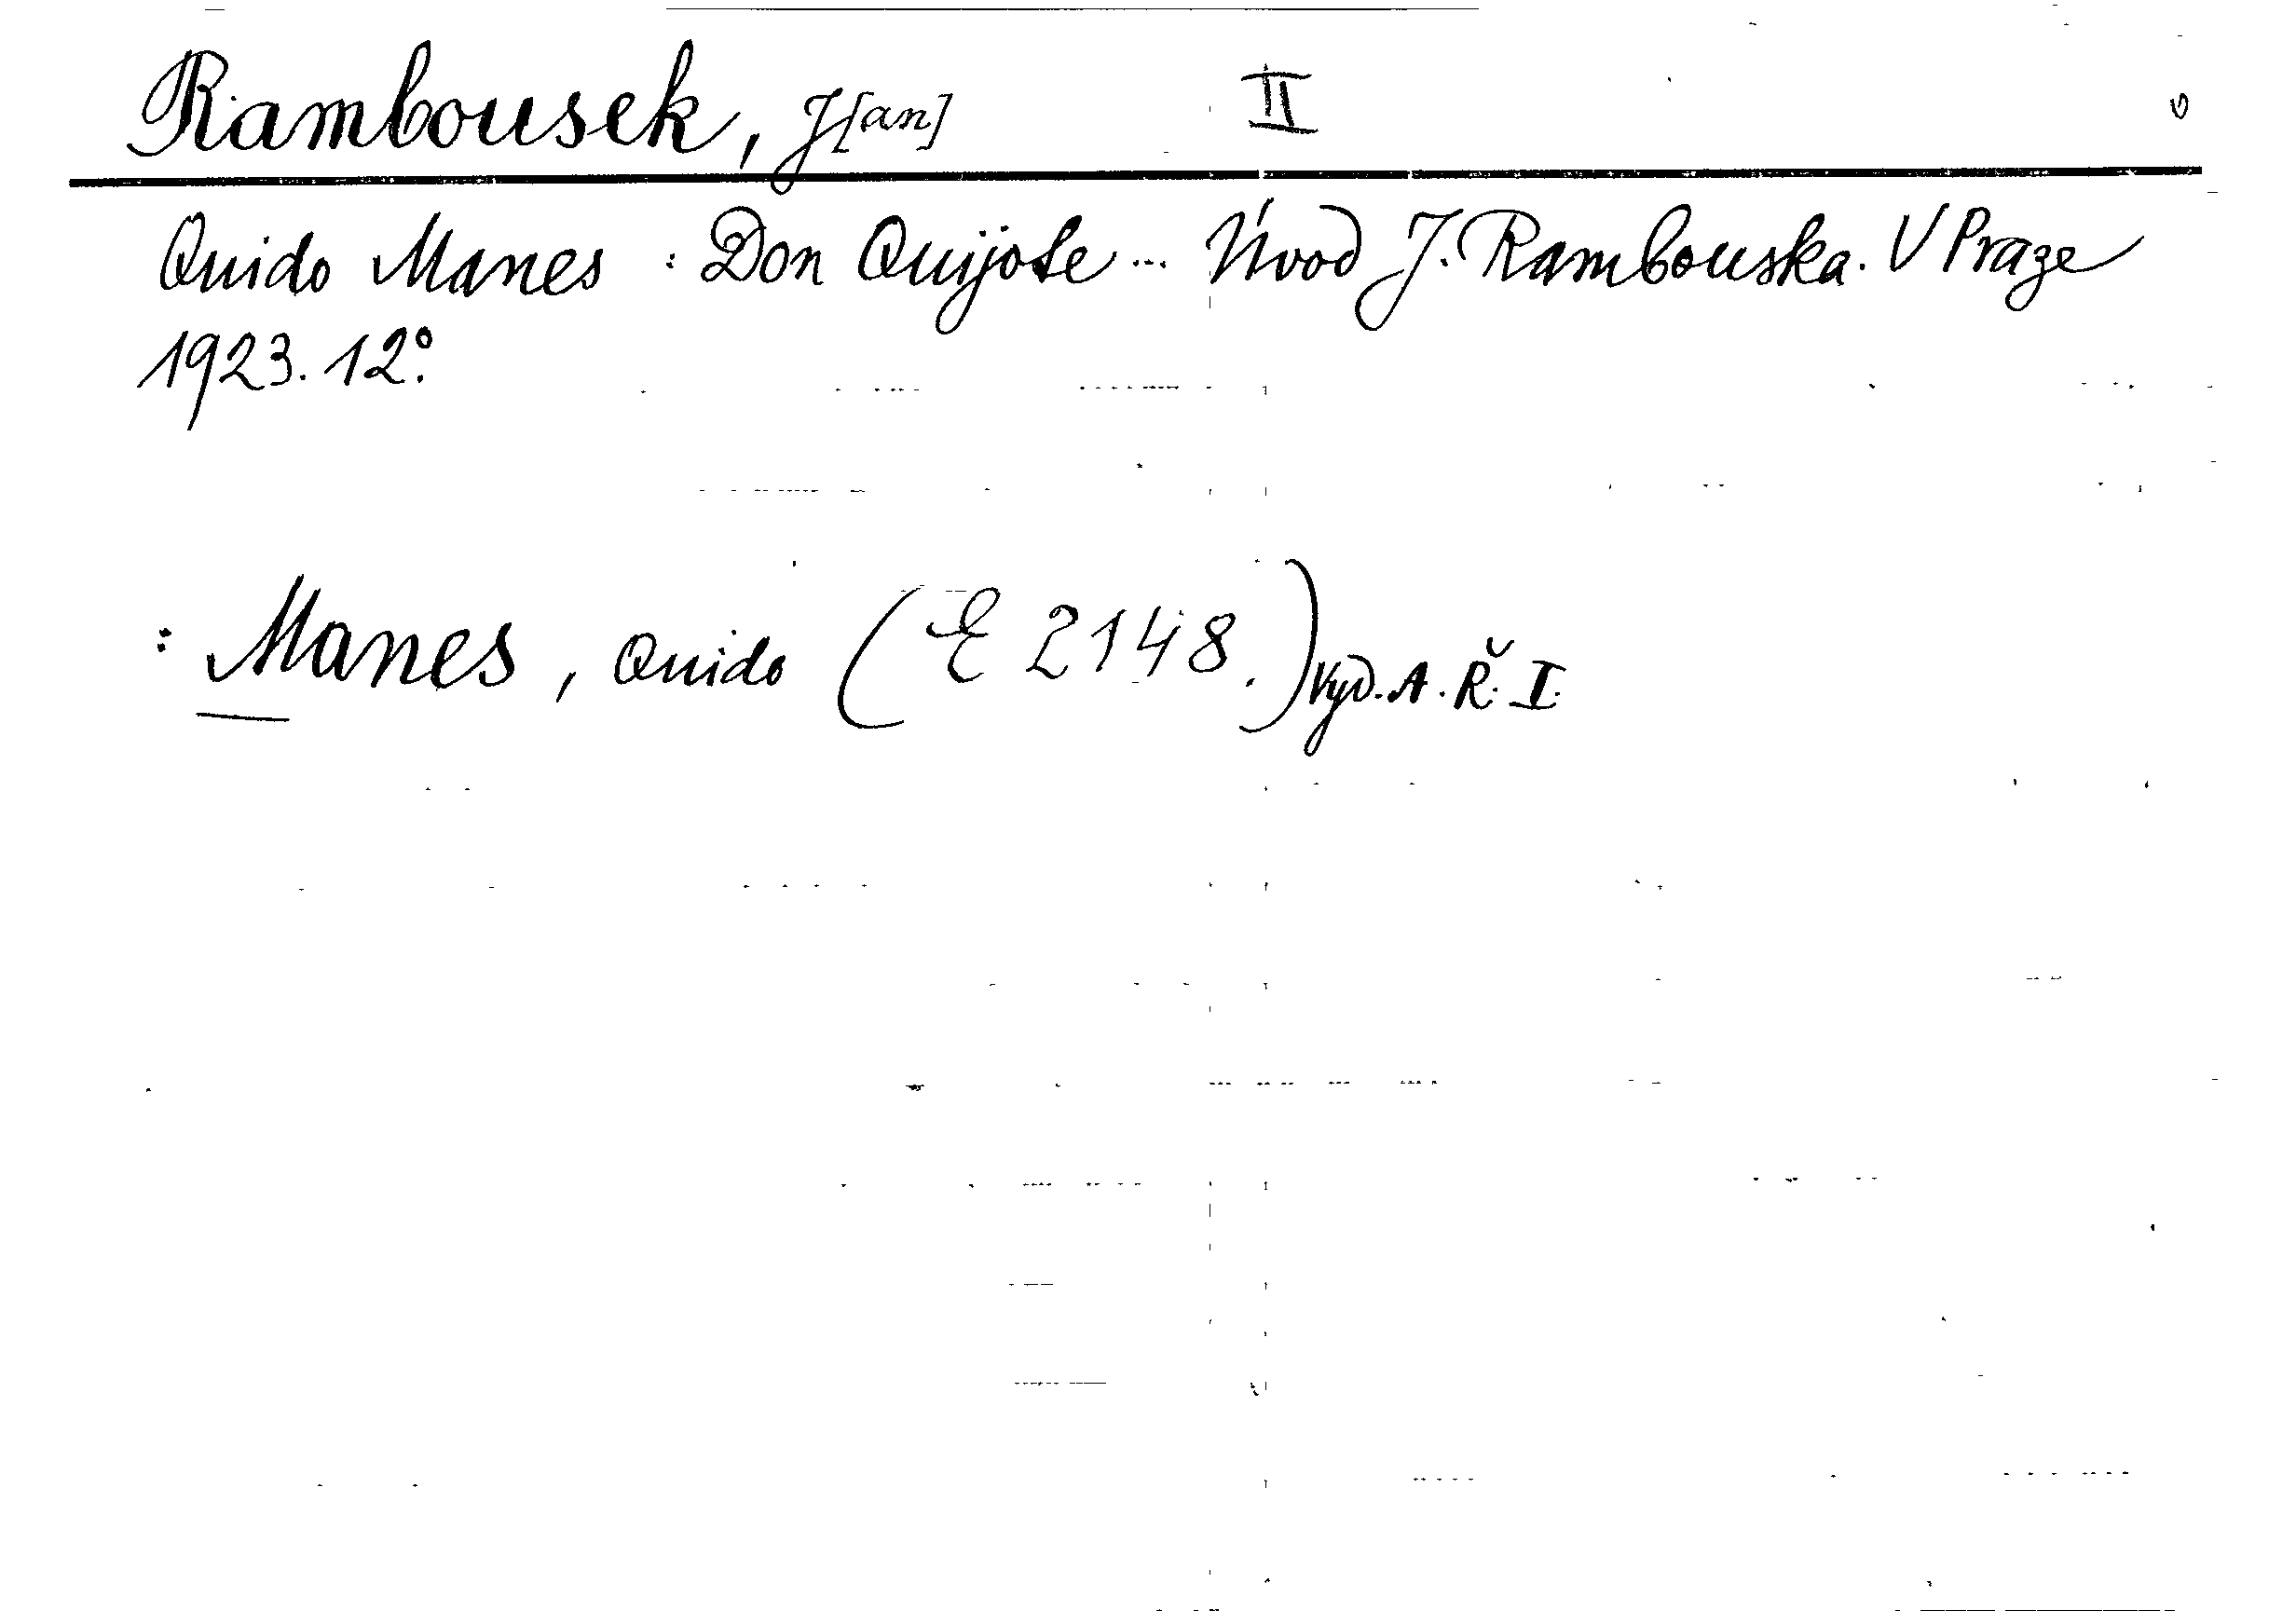 Rambousek, J[an] II
Quido Manes : Don Quijote ... Úvod J. Rambouska. V Praze
1923. 12°.
: Manes, Quido (E 2148.) Vyd. A. Ř. I.